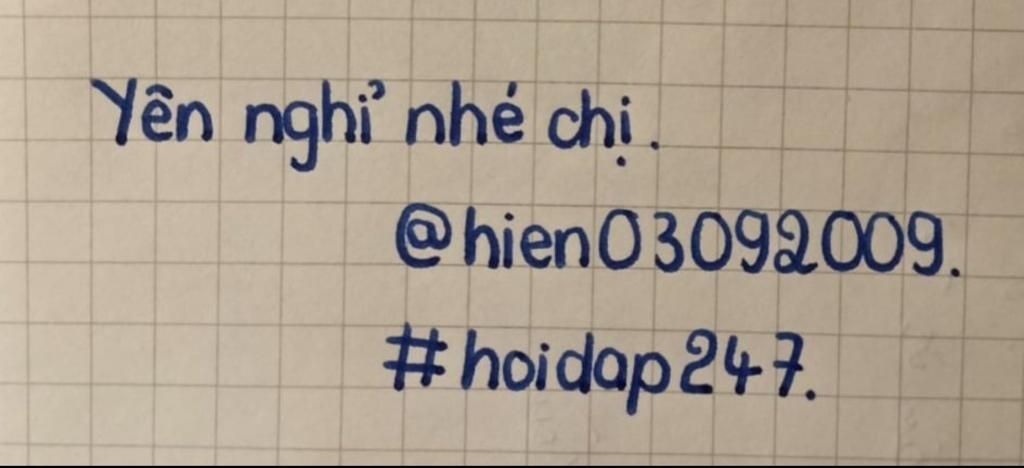 Yên nghỉ nhé chị.
@hien03092009.
#hoidap247.